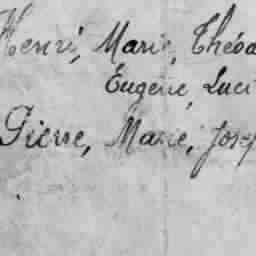 Henri, Marie, Théod
Eugène, Luci
Pierre, Marie, Josep